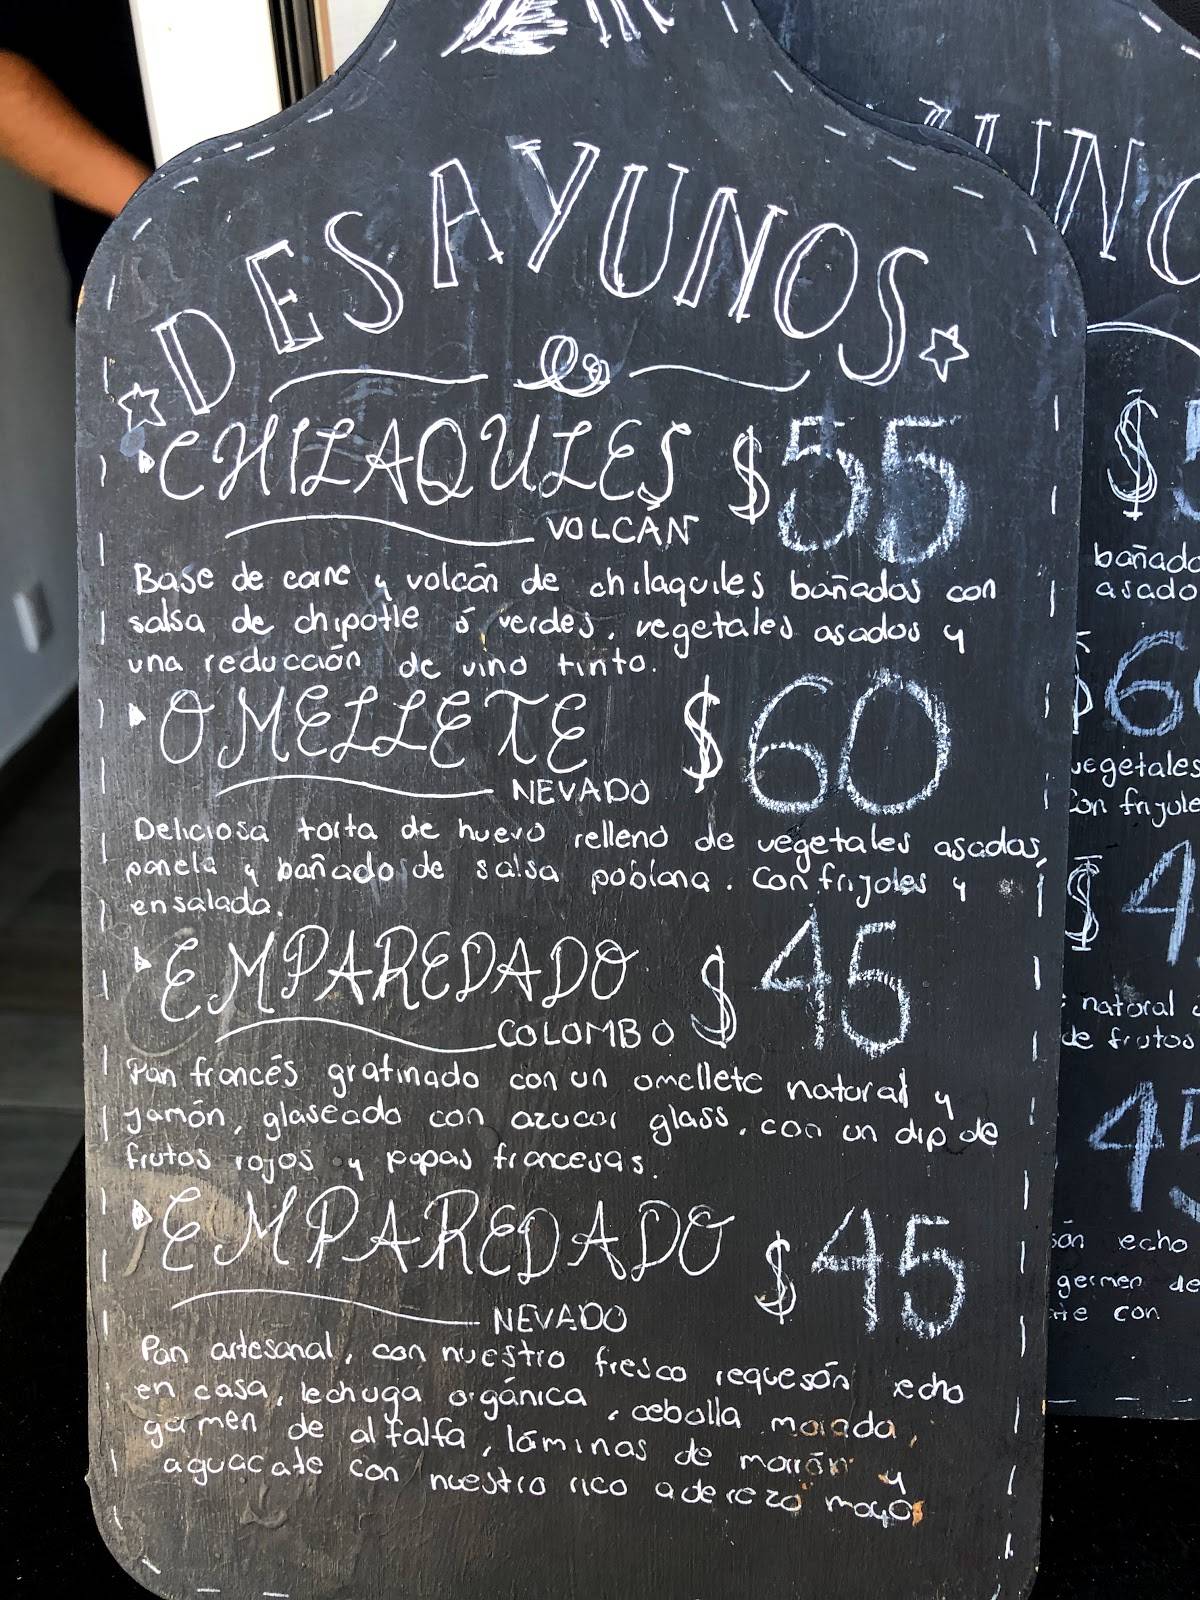 DESAYUNOS
CHILAQUILES $55
VOLCÁN
Base de carne y volcán de chilaquiles bañados con
salsa de chipotle ó verdes, vegetales asados y
una reducción de vino tinto.
OMELLETE $60
NEVADO
Deliciosa torta de huevo relleno de vegetales asados,
panela y bañado de salsa poblana. Con frijoles y
ensalada.
EMPAREDADO $45
COLOMBO
Pan francés gratinado con un omellete natural y
jamón, glaseado con azucar glass, con un dip de
frutos rojos y papas francesas.
EMPAREDADO $45
NEVADO
Pan artesanal, con nuestro fresco requesón echo
en casa, lechuga orgánica, cebolla morada,
germen de alfalfa, láminas de morrón y
aguacate con nuestro rico aderezo mayo
UNO
$5
bañado
asado
$60
vegetales
Con frijole
$4
natural
de frutos
45
són echo
germen de
con